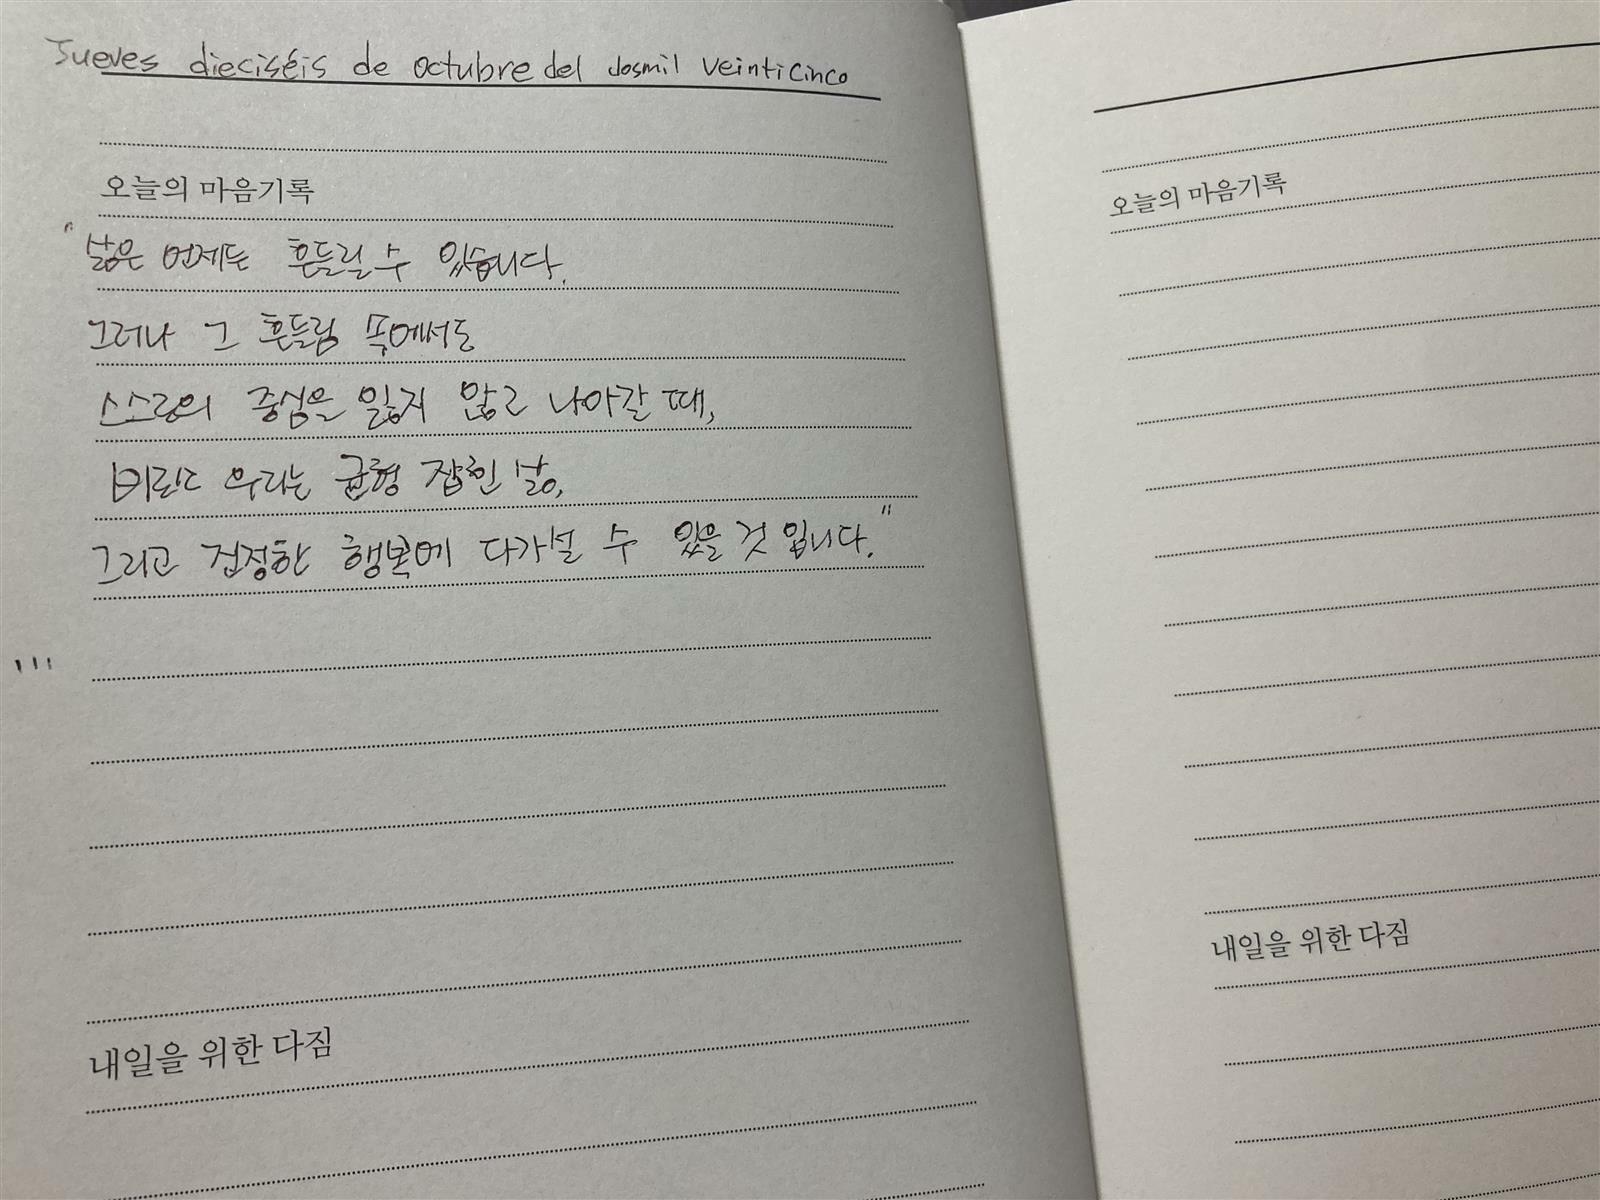 Jueves dieciséis de octubre del dosmil veinticinco
오늘의 마음기록
"삶은 언제든 흔들릴 수 있습니다.
그러나 그 흔들림 속에서도
스스로의 중심을 잃지 않고 나아갈 때,
비로소 우리는 균형 잡힌 삶,
그리고 진정한 행복에 다가설 수 있을 것 입니다."
내일을 위한 다짐
오늘의 마음기록
내일을 위한 다짐